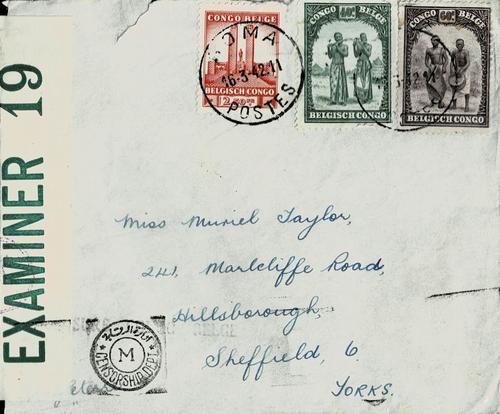 EXAMINER 19
CONGO BELGE
BELGISCH CONGO
CONGO BELGE
BELGISCH CONGO
CONGO BELGE
BELGISCH CONGO
16-3-42.11
POSTES
Miss Muriel Taylor,
241, Marlcliffe Road,
Hillsborough,
Sheffield, 6
YORKS.
M
CENSORSHIP DEPT.